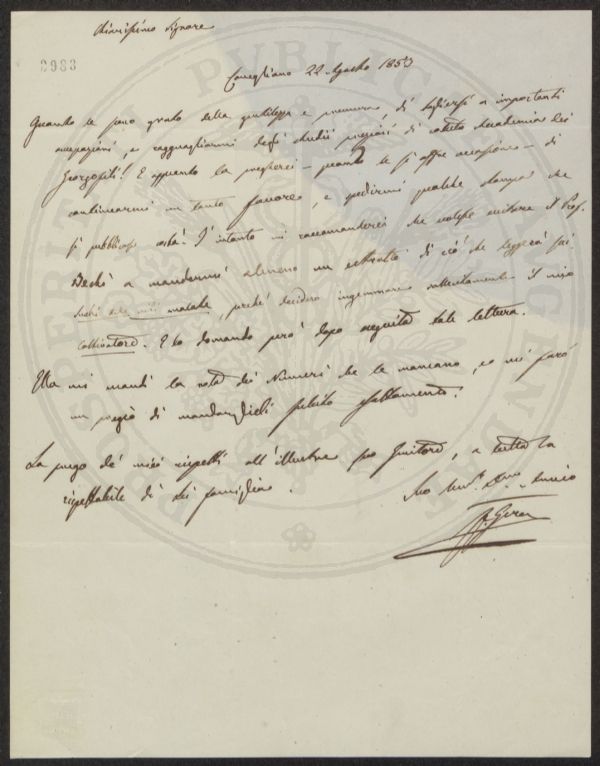 Chiarissimo Signore
2983
Conegliano 22 Agosto 1853
Quanto le sono grato della gentilezza e premura, di togliersi a importanti
occupazioni, e ragguagliarmi degli studii preziosi di cotesta Accademia dei
Georgofili! E appunto la pregherei – quando le si offre occasione – di
continuarmi un tanto favore, e spedirmi qualche stampa che
si pubblicasse costà! D'intanto mi raccomanderei che volesse eccitare il Prof.
Bechi a mandarmi almeno un estratto di ciò che leggerà sui
malate, perchè desidero ingemmare sollecitamente il mio
Coltivatore. E lo domando però dopo seguita tale lettura.
Ella mi mandi la nota dei Numeri che le mancano, ed mi farò
un pregio di mandarglieli subito esattamente.
La prego de' miei rispetti all'illustre suo Genitore, a tutta la
rispettabile di Lei famiglia.
Suo Amico
PROSPERITATI PUBLICAE AUGENDAE